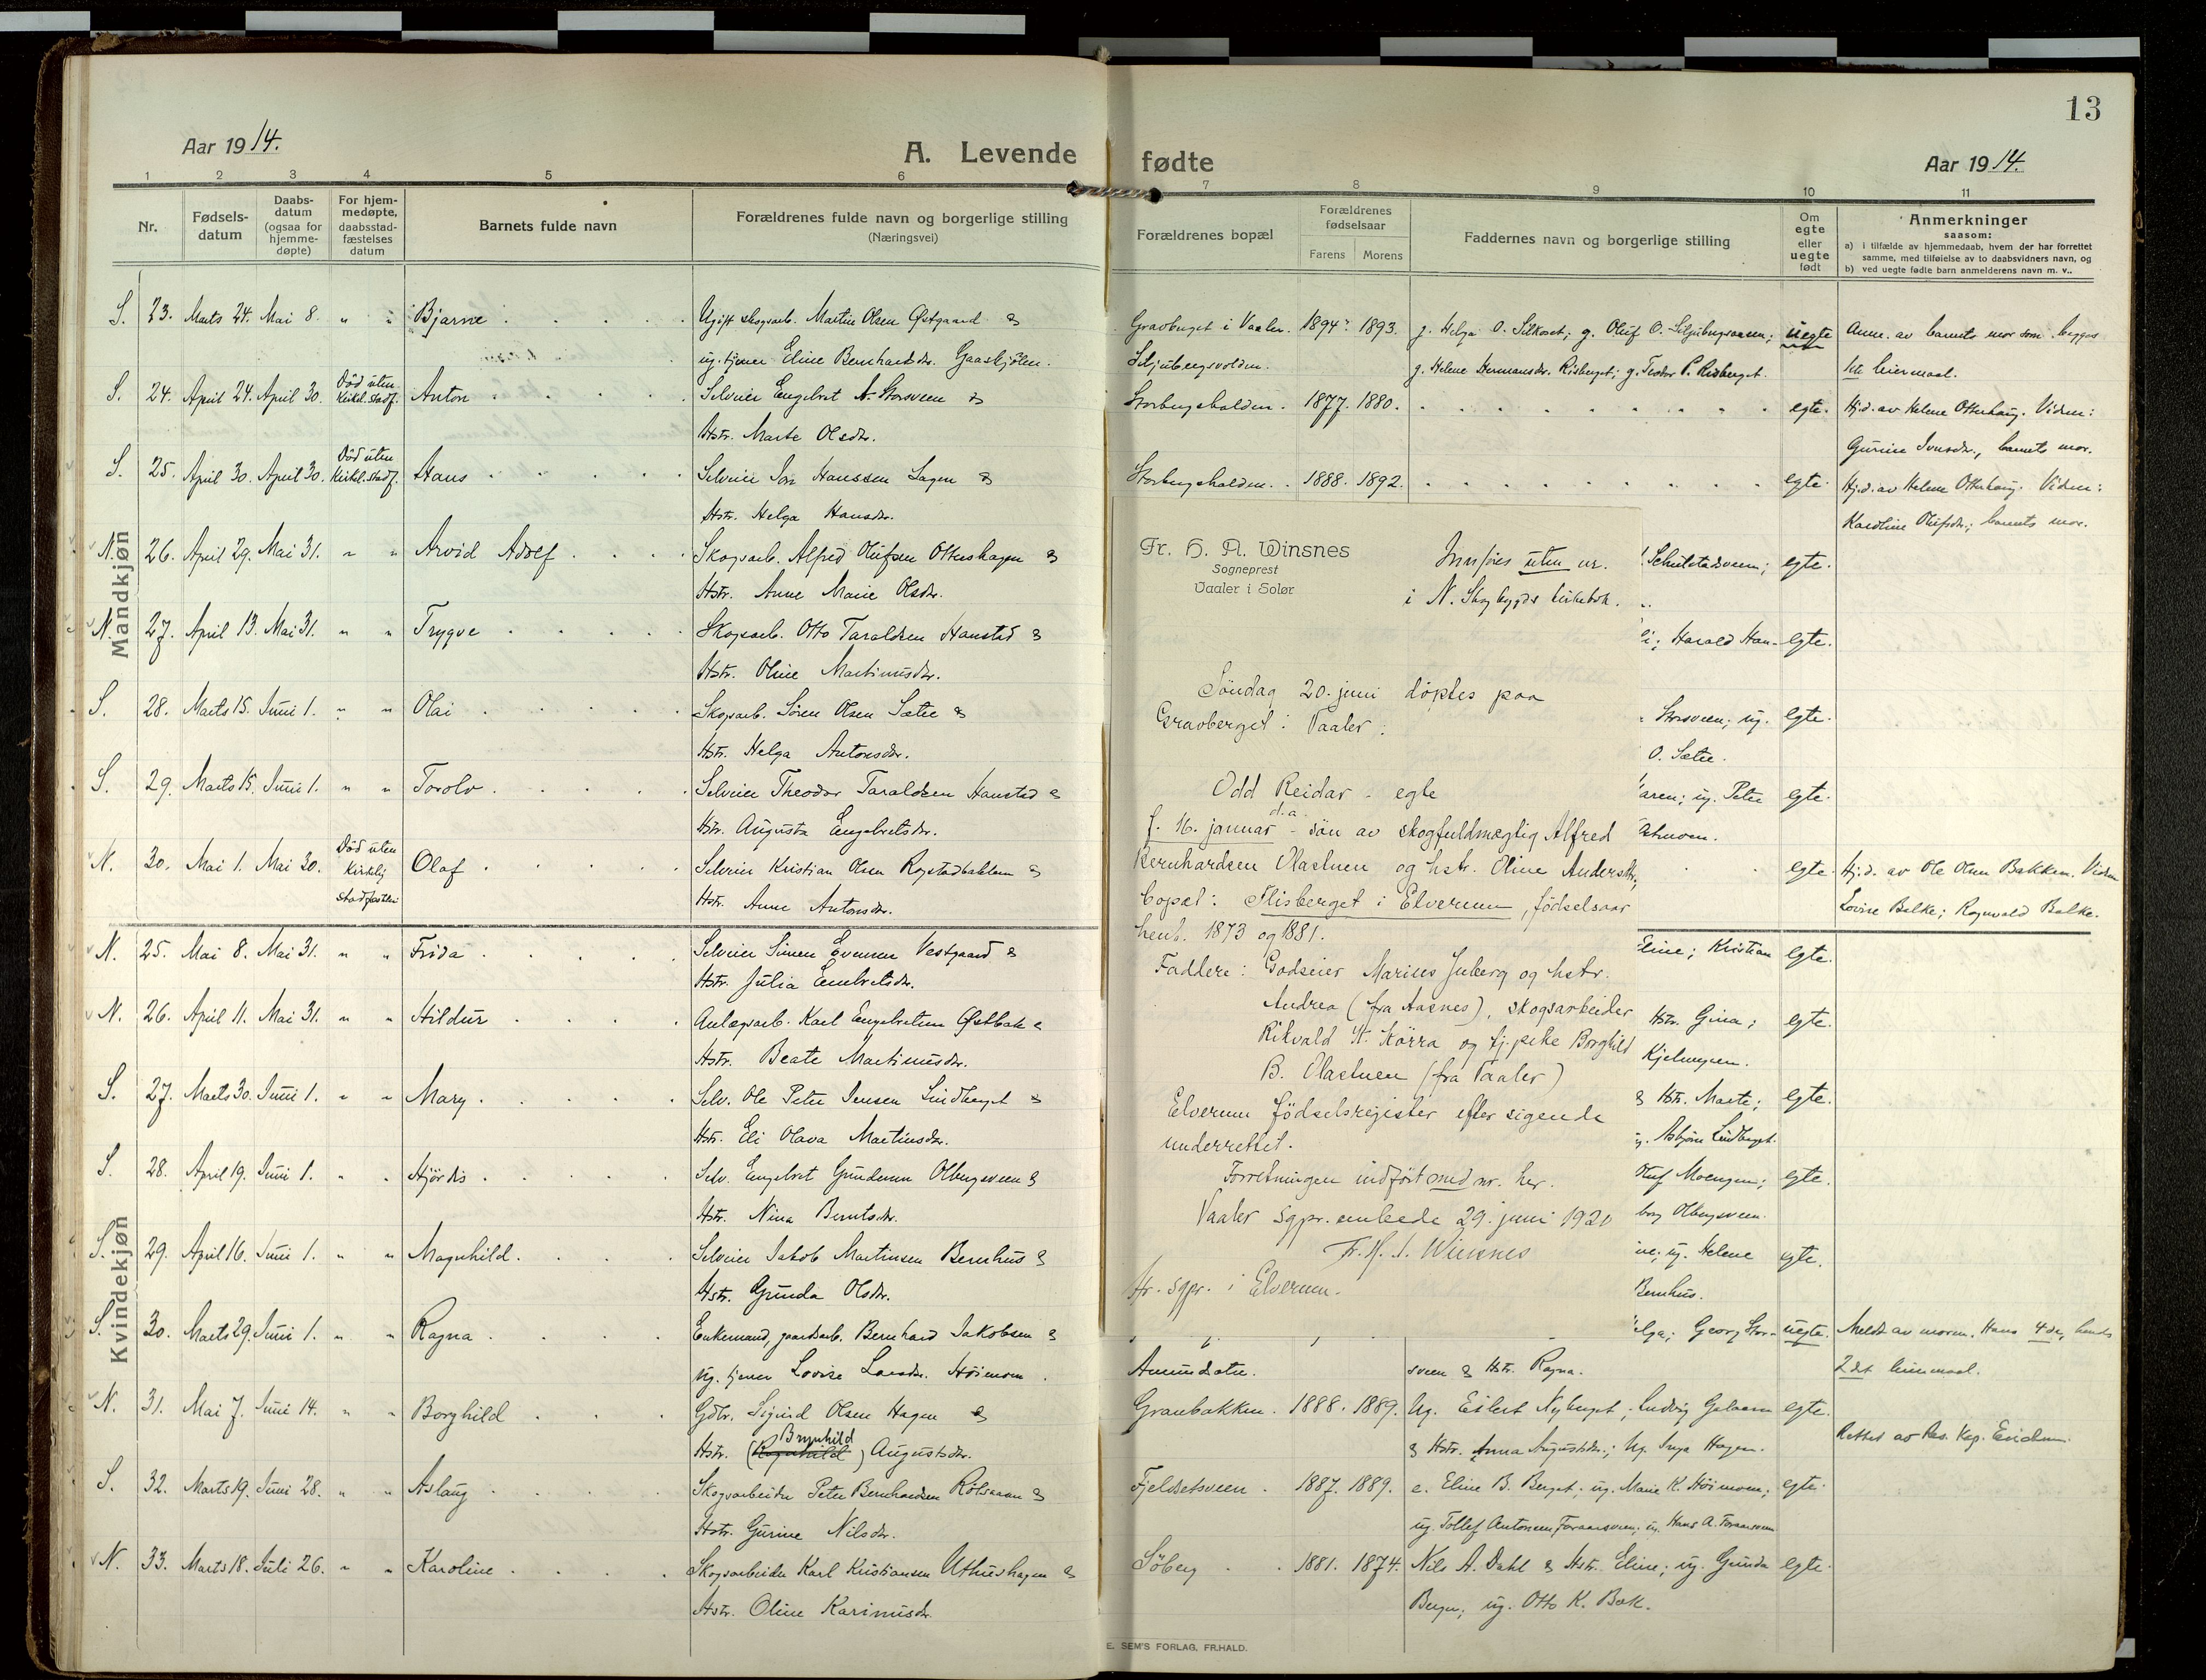 13
Aar 1914.
A. Levende fødte
Aar 1914.
1 2 3 4 5 6 7 8 9 10 11
Nr.
Fødselsdatum
Daabsdatum (ogsaa for hjemmedøpte)
For hjemmedøpte, daabsstadfæstelses datum
Barnets fulde navn
Forældrenes fulde navn og borgerlige stilling
(Næringsvei)
Forældrenes bopæl
Forældrenes fødselsaar
Farens Morens
Faddernes navn og borgerlige stilling
Om egte eller uegte født
Anmerkninger
saasom:
a) i tilfælde av hjemmedaab, hvem der har forrettet
samme, med tilføielse av to daabsvidners navn, og
b) ved uegte fødte barn anmelderens navn m. v..
Mandkjøn
S. 23. Marts 24. Mai 8. " " Bjarne Ugift skogsarb. Martin Olsen Østgaard & Gravberget i Vaaler. 1894. 1893. uegte Anm. av barnets mor som begges
ug. tjener Eline Bernhardsdr. Gaaskjølen. g. Helene Hermansdr. Risberget; 1ste leiermaal.
S. 24. April 24. April 30. Død uten kirkel. stadf. Anton Selveier Engebret A. Storsveen & Storbergshalden. 1877. 1880. egte. Hj.d. av Helene Otterhaug. Vidner:
Hstr. Marte Olsdr. barnets mor.
S. 25. April 30. April 30. Død uten kirkel. stadf. Hans Selveier Jon Hanssen Lagen & Storbergshalden. 1888. 1892. egte. Hj.d. av Helene Otterhaug. Vidner:
Hstr. Helga Hansdr. Karoline Olufsdr.; barnets mor.
N. 26. April 29. Mai 31. " " Arvid Adolf Skogsarb. Alfred Olufsen Ottershagen & egte.
Hstr. Anne Marie Olsdr.
N. 27. April 13. Mai 31. " " Trygve Skogsarb. Otto Taraldsen Hanstad & Harald Han- egte.
Hstr. Oline Martinusdr.
S. 28. Marts 15. Juni 1. " " Olai Skogsarb. Søren Olsen Sætre & Storsveen; ug. egte.
Hstr. Helga Antonsdr. O. Sætre.
S. 29. Marts 15. Juni 1. " " Torolv Selveier Theodor Taraldsen Hanstad & ug. Peter egte.
Hstr. Augusta Engebretsdr.
N. 30. Mai 1. Mai 30. Død uten kirkelig stadfæstelse Olaf Selveier Kristian Olsen & egte. Hj.d. av Ole Olsen Bakken. Vidner
Hstr. Anne Antonsdr. Lovise Bolke; Ragnvald Bolke.
Fr. H. A. Winsnes
Sogneprest
Vaaler i Solør
Innføres uten nr.
i N. Skogbygds kirkebok.
Søndag 20. juni døptes paa
Gravberget i Vaaler:
Odd Reidar - egte
f. 16. januar d.a. - søn av skogfuldmægtig Alfred
Bernhardsen Olastuen og hstr. Oline Andersdtr.,
bopæl: Flisberget i Elverum, fødselsaar
henh. 1873 og 1881.
Faddere: Godseier Marius Juberg og hstr.
Andrea (fra Aasnes), skogsarbeider
Rikvald H. Kørra og tj.pike Borghild
B. Olastuen (fra Vaaler)
Elverum fødselsregister efter sigende
underrettet.
Forretningen indført med nr. her.
Vaaler sgpr.embede 29. juni 1920
Fr. H. A. Winsnes
Hr. sgpr. i Elverum.
Kvindekjøn
N. 25. Mai 8. Mai 31. " " Frida Selveier Simen Evensen Vestgaard & Kristian egte.
Hstr. Julia Embretsdr.
N. 26. April 11. Mai 31. " " Hildur Anlægsarb. Karl Engebretsen Østbak & Hstr. Gina; egte.
Hstr. Beate Martinusdr.
S. 27. Marts 30. Juni 1. " " Mary Selv. Ole Peter Jensen Lindberget & & Hstr. Marte; egte.
Hstr. Eli Olava Martinsdr. Asbjørn Lindberget.
S. 28. April 19. Juni 1. " " Hjørdis Selv. Engebret Gundersen Olbergsveen & Moengen; egte.
Hstr. Nina Berntsdr. Olbergsveen.
S. 29. April 16. Juni 1. " " Magnhild Selveier Jakob Martinsen Bernhus & ug. Helene egte.
Hstr. Gunda Olsdr. Bernhus.
S. 30. Marts 29. Juni 1. " " Ragna Enkemand, gaardsarb. Bernhard Jakobsen & Georg Stor- uegte. Meldt av moren. Hans 4de, hendes
ug. tjener Lovise Larsdr. Høimoen. Amundsætre. sveen & Hstr. Ragna. 2det leiermaal.
N. 31. Mai 7. Juni 14. " " Borghild Gdbr. Sigurd Olsen Hagen & Granbakken. 1888. 1889. Ug. Eilert Nyberget; Ludvig egte.
Hstr. (Ragnhild) Brynhild Augustsdr. & Hstr. Anna Augustsdr.; ug. Inga Hagen. Rettet av Res. Kap. Eidem.
S. 32. Marts 19. Juni 28. " " Aslaug Skogsarbeider Peter Bernhardsen & Fjeldsetsveen. 1887. 1889. e. Eline B. Berget; ug. Marie K. Høimoen; egte.
Hstr. Gurine Nilsdr. ug. Tollef Antonsen
N. 33. Marts 18. Juli 26. " " Karoline Skogsarbeider Karl Kristiansen Uthushagen & Søberg 1881. 1874. Nils A. Dahl & Hstr. Eline; ug. Gunda egte.
Hstr. Oline Karinusdr. Berger; ug. Otto K. Bak.
E. SEM'S FORLAG, FR.HALD.